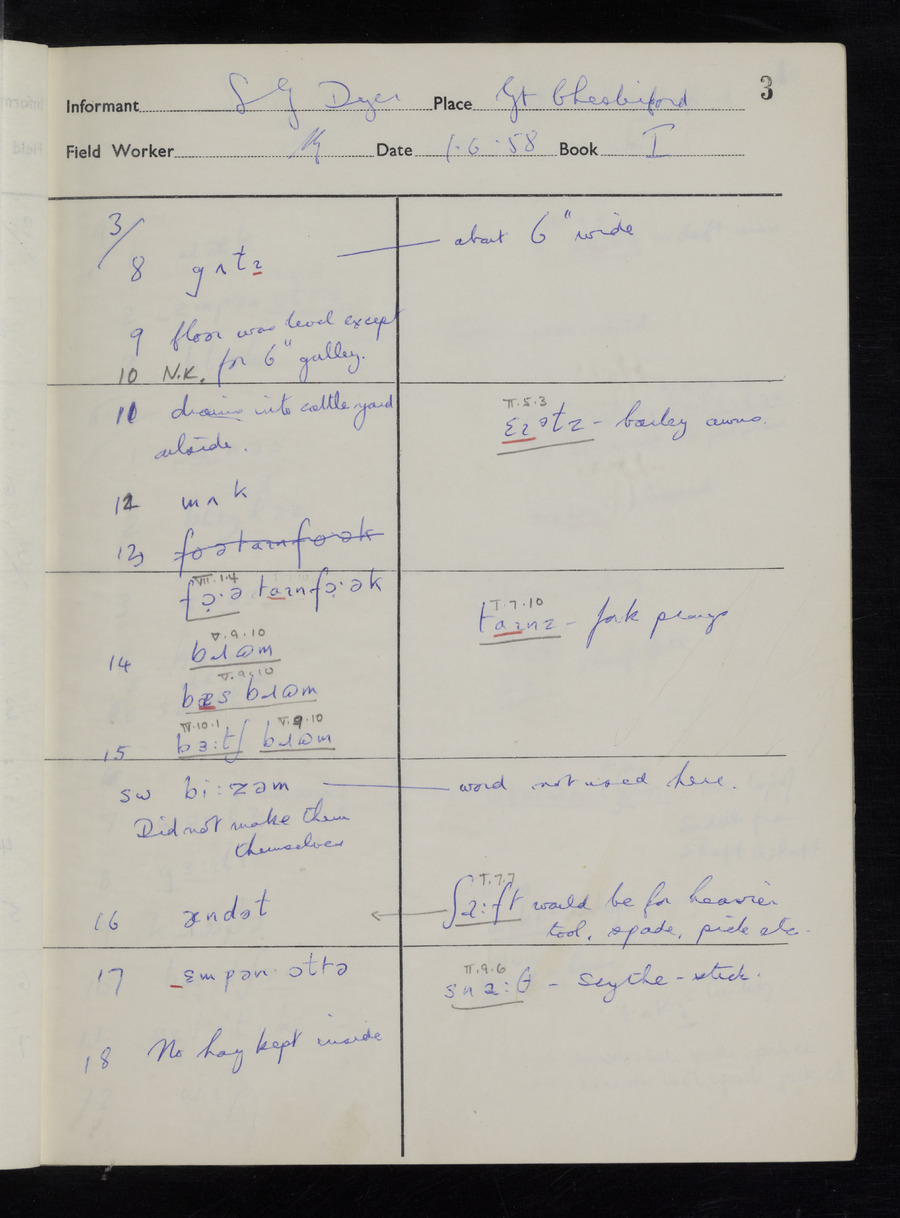 3
Informant S G Dyer Place Gt Chesterford
Field Worker Date 1·6·58 Book I
3/
8 gʌtɪ — about 6" wide
9 floor was level except
for 6" gulley.
10 N.K.
11 drains into cattle yard
outside.
II.5.3
— barley awns.
12 mʌk
13
VII.1.4
fɔ̣·ə taɪnfɔ̣·ək
I.7.10
taɪnz — fork prongs
V.9.10
14 bɹɷm
V.9.10
bæs bɹɷm
IV.10.1 V.9.10
15 bɜ:tʃ bɹɷm
sw bi:zəm — word not used here.
Did not make them
themselves
I.7.7
16 ændət ← ʃa:ft would be for heavier
tool, spade, pick etc.
17 ɛmpən·
II.9.6
sna:θ — scythe-stick.
18 No hay kept inside